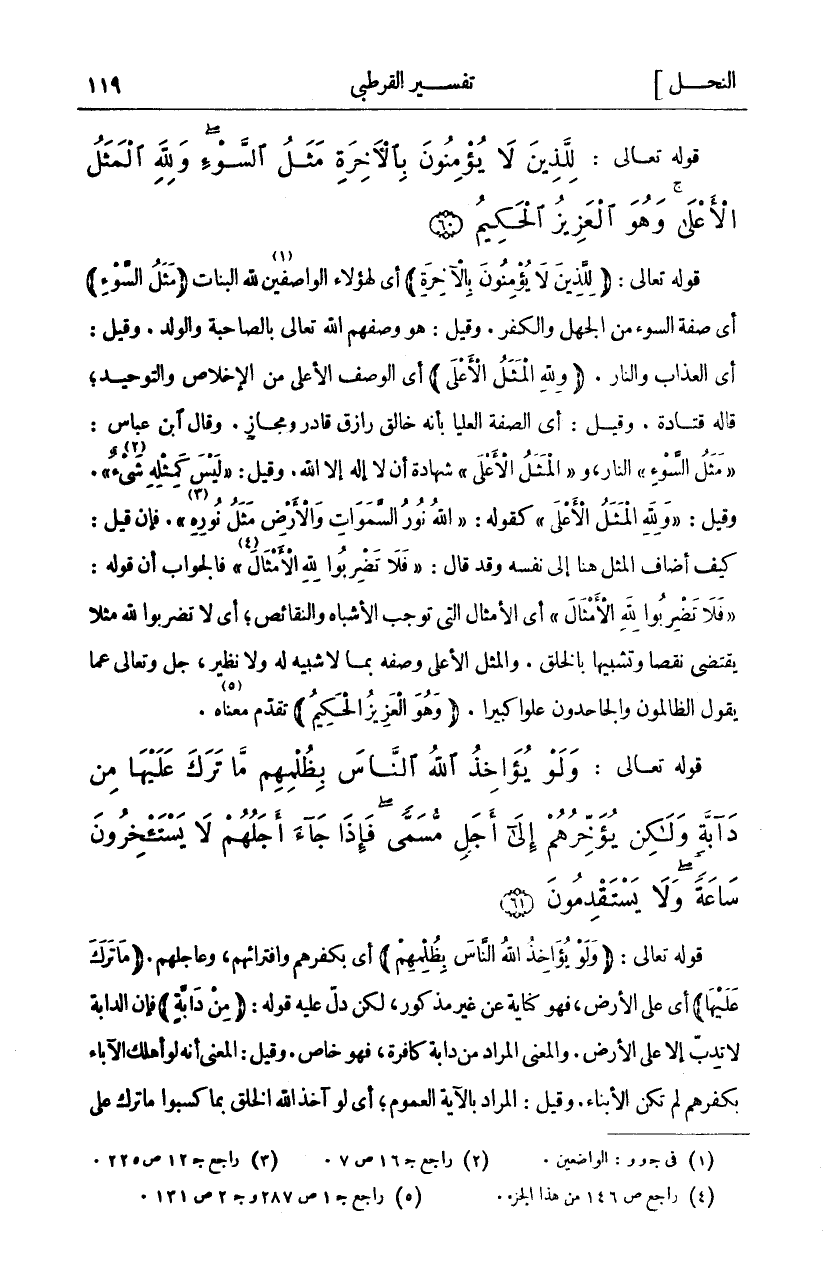 النحـــل ] تفســـير القرطبي ١١٩
قوله تعـالى : لِلَّذِينَ لَا يُؤْمِنُونَ بِٱلْأَخِرَةِ مَثَـلُ ٱلسَّوْءِ ۖ وَلِلَّهِ ٱلْمَثَلُ
ٱلْأَعْلَىٰ ۚ وَهُوَ ٱلْعَزِيزُ ٱلْحَكِيمُ ﴿٦٠﴾
قوله تعالى : ﴿ لِلَّذِينَ لَا يُؤْمِنُونَ بِالْآخِرَةِ ﴾ أى لهؤلاء الواصفين (١) لله البنات ﴿ مَثَلُ السَّوْءِ ﴾
أى صفة السوء من الجهل والكفر . وقيل : هو وصفهم الله تعالى بالصاحبة والولد . وقيل :
أى العذاب والنار . ﴿ وَلِلَّهِ الْمَثَـلُ الْأَعْلَى ﴾ أى الوصف الأعلى من الإخلاص والتوحيـد؛
قاله قتـادة . وقيـل : أى الصفة العليا بأنه خالق رازق قادر ومجـازٍ . وقال آبن عباس :
« مَثَلُ السَّوْءِ » النار، و « الْمَثَـلُ الْأَعْلَى » شهادة أن لا إله إلا الله . وقيل : « لَيْسَ كَمِثْلِهِ شَىْءٌ (٢) » .
وقيل : « وَلِلَّهِ الْمَثَـلُ الْأَعْلَى » كقوله : « اللَّهُ نُورُ السَّمَوَاتِ وَالْأَرْضِ مَثَلُ نُورِهِ (٣) » . فإن قيل :
كيف أضاف المثل هنا إلى نفسه وقد قال : « فَلَا تَضْرِبُوا لِلَّهِ الْأَمْثَالَ (٤) » فالجواب أن قوله :
« فَلَا تَضْرِبُوا لِلَّهِ الْأَمْثَالَ » أى الأمثال التى توجب الأشباه والنقائص؛ أى لا تضربوا لله مثلا
يقتضى نقصا وتشبيها بالخلق . والمثل الأعلى وصفه بمـا لا شبيه له ولا نظير، جل وتعالى عما
يقول الظالمون والجاحدون علوا كبيرا . ﴿ وَهُوَ الْعَزِيزُ الْحَكِيمُ (٥) ﴾ تقدّم معناه .
قوله تعـالى : وَلَوْ يُؤَاخِذُ ٱللَّهُ ٱلنَّـاسَ بِظُلْمِهِم مَّا تَرَكَ عَلَيْهَا مِن
دَآبَّةٍ وَلَـٰكِن يُؤَخِّرُهُمْ إِلَىٰٓ أَجَلٍ مُّسَمًّى ۖ فَإِذَا جَآءَ أَجَلُهُمْ لَا يَسْتَـْٔخِرُونَ
سَاعَةً ۖ وَلَا يَسْتَقْدِمُونَ ﴿٦١﴾
قوله تعالى : ﴿ وَلَوْ يُؤَاخِذُ اللَّهُ النَّاسَ بِظُلْمِهِمْ ﴾ أى بكفرهم وافترائهم، وعاجلهم . ﴿ مَا تَرَكَ
عَلَيْهَا ﴾ أى على الأرض، فهو كناية عن غير مذكور، لكن دلّ عليه قوله : ﴿ مِنْ دَابَّةٍ ﴾ فإن الدابة
لا تدِبّ إلا على الأرض . والمعنى المراد من دابة كافرة، فهو خاص . وقيل : المعنى أنه لو أهلك الآباء
بكفرهم لم تكن الأبناء . وقيل : المراد بالآية العموم؛ أى لو آخذ الله الخلق بما كسبوا ما ترك على
(١) فى جـ و و : الواضعين . (٢) راجع جـ ١٦ ص ٧ . (٣) راجع جـ ١٢ ص ٢٢٥ .
(٤) راجع ص ١٤٦ من هذا الجزء . (٥) راجع جـ ١ ص ٢٨٧ و جـ ٢ ص ١٣١ .